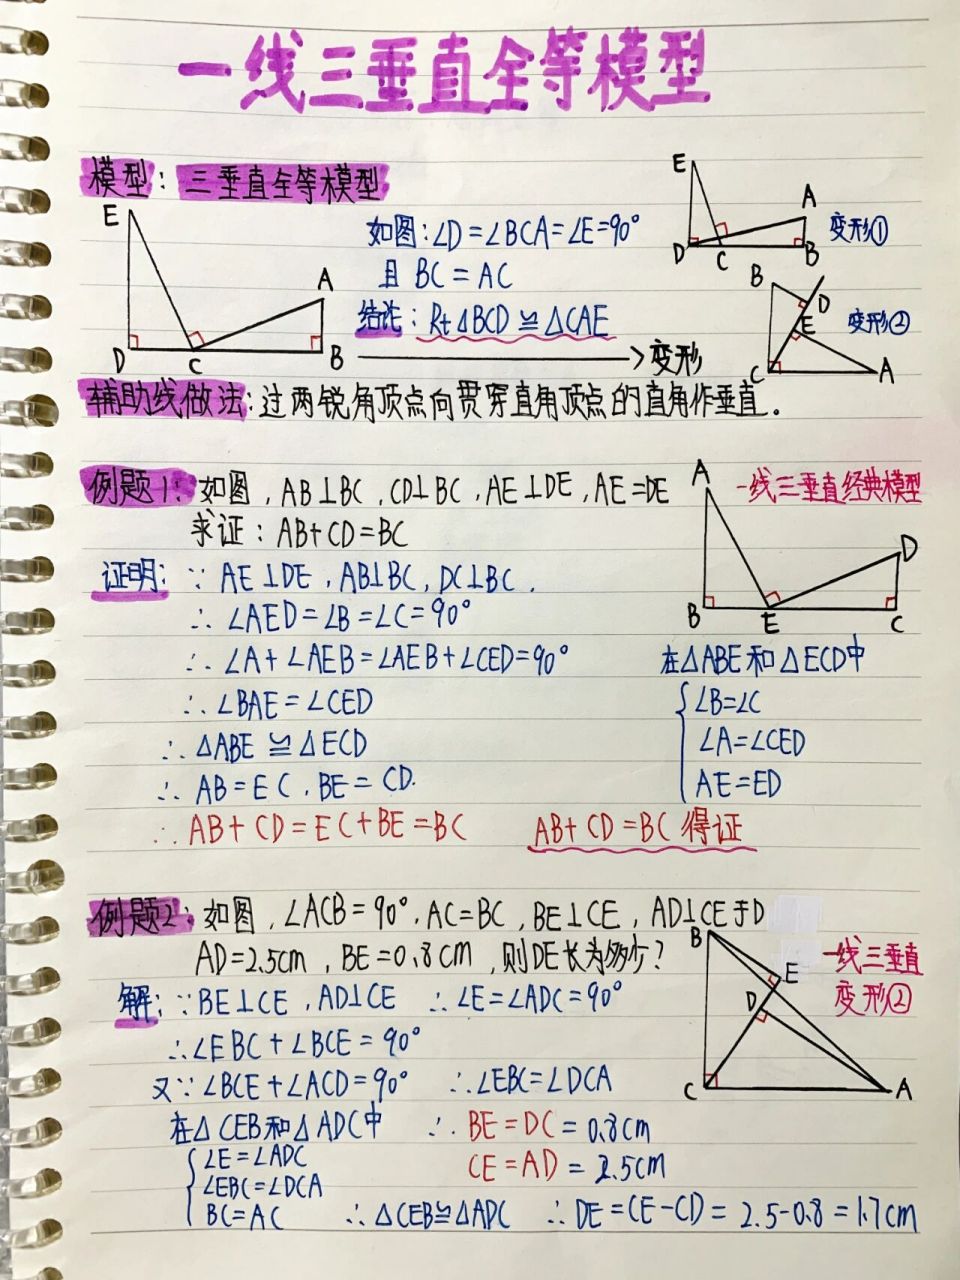 一线三垂直全等模型
模型：三垂直全等模型
E
A
D
C
B
如图：∠D=∠BCA=∠E=90°
且 BC=AC
结论：Rt△BCD≌△CAE
变形
E
A
D
C
B
变形①
B
D
E
C
A
变形②
辅助线做法：过两锐角顶点向贯穿直角顶点的直角作垂直。
例题1：如图，AB⊥BC，CD⊥BC，AE⊥DE，AE=DE
求证：AB+CD=BC
A
一线三垂直经典模型
D
B
E
C
证明：∵AE⊥DE，AB⊥BC，DC⊥BC，
∴∠AED=∠B=∠C=90°
∴∠A+∠AEB=∠AEB+∠CED=90°
∴∠BAE=∠CED
∴△ABE≌△ECD
∴AB=EC，BE=CD.
在△ABE和△ECD中
∠B=∠C
∠A=∠CED
AE=ED
∴AB+CD=EC+BE=BC AB+CD=BC 得证
例题2：如图，∠ACB=90°，AC=BC，BE⊥CE，AD⊥CE于D
AD=2.5cm，BE=0.8cm，则DE长为多少？
B
E
D
C
A
一线三垂直
变形②
解：∵BE⊥CE，AD⊥CE ∴∠E=∠ADC=90°
∴∠EBC+∠BCE=90°
又∵∠BCE+∠ACD=90° ∴∠EBC=∠DCA
在△CEB和△ADC中 ∴BE=DC=0.8cm
∠E=∠ADC CE=AD=2.5cm
∠EBC=∠DCA
BC=AC ∴△CEB≌△ADC ∴DE=CE-CD=2.5-0.8=1.7cm